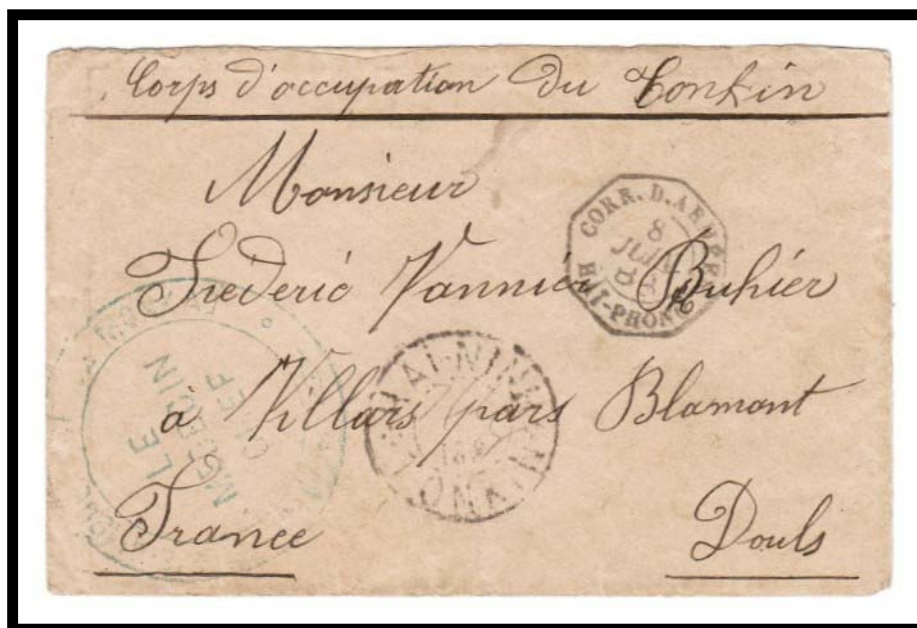 Corps d'occupation du Tonkin
Monsieur
Frédéric Vannier Buhier
à Villars pars Blamont
France Douls
CORR. D. ARMÉES
8
JUIL
HAI-PHONG
HAI-NINH
TONKIN
LE
MÉDECIN
CHEF